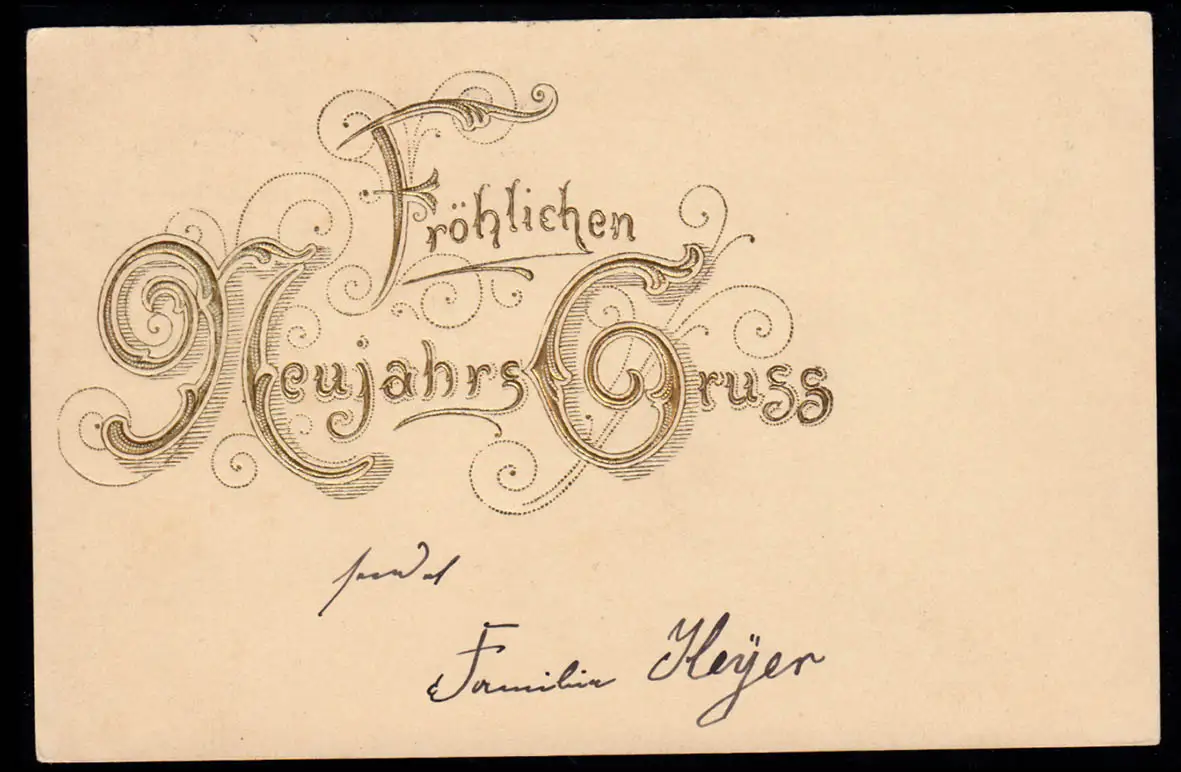 Fröhlichen
Neujahrs Gruss
sendet
Familie Heÿer